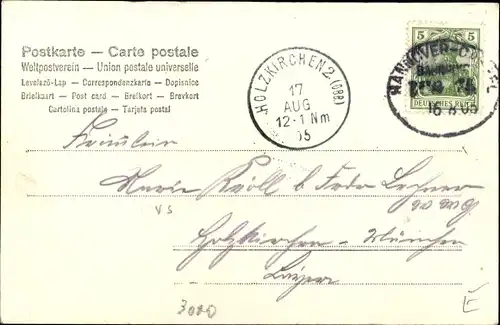 Postkarte — Carte postale
Weltpostverein — Union postale universelle
Levelező-Lap — Correspondenzkarte — Dopisnice
Brielkaart — Post card — Brefkort — Brevkort
Cartolina postale — Tarjeta postal
HOLZKIRCHEN 2. (OBB.)
17
AUG
12-1 Nm
05
5 5
HANNOVER
BAHNHOF
DEUTSCHES REICH
16 8 05
Fräulein
Marie bei Frau
Holzkirchen - München
Bayern
VS
3000